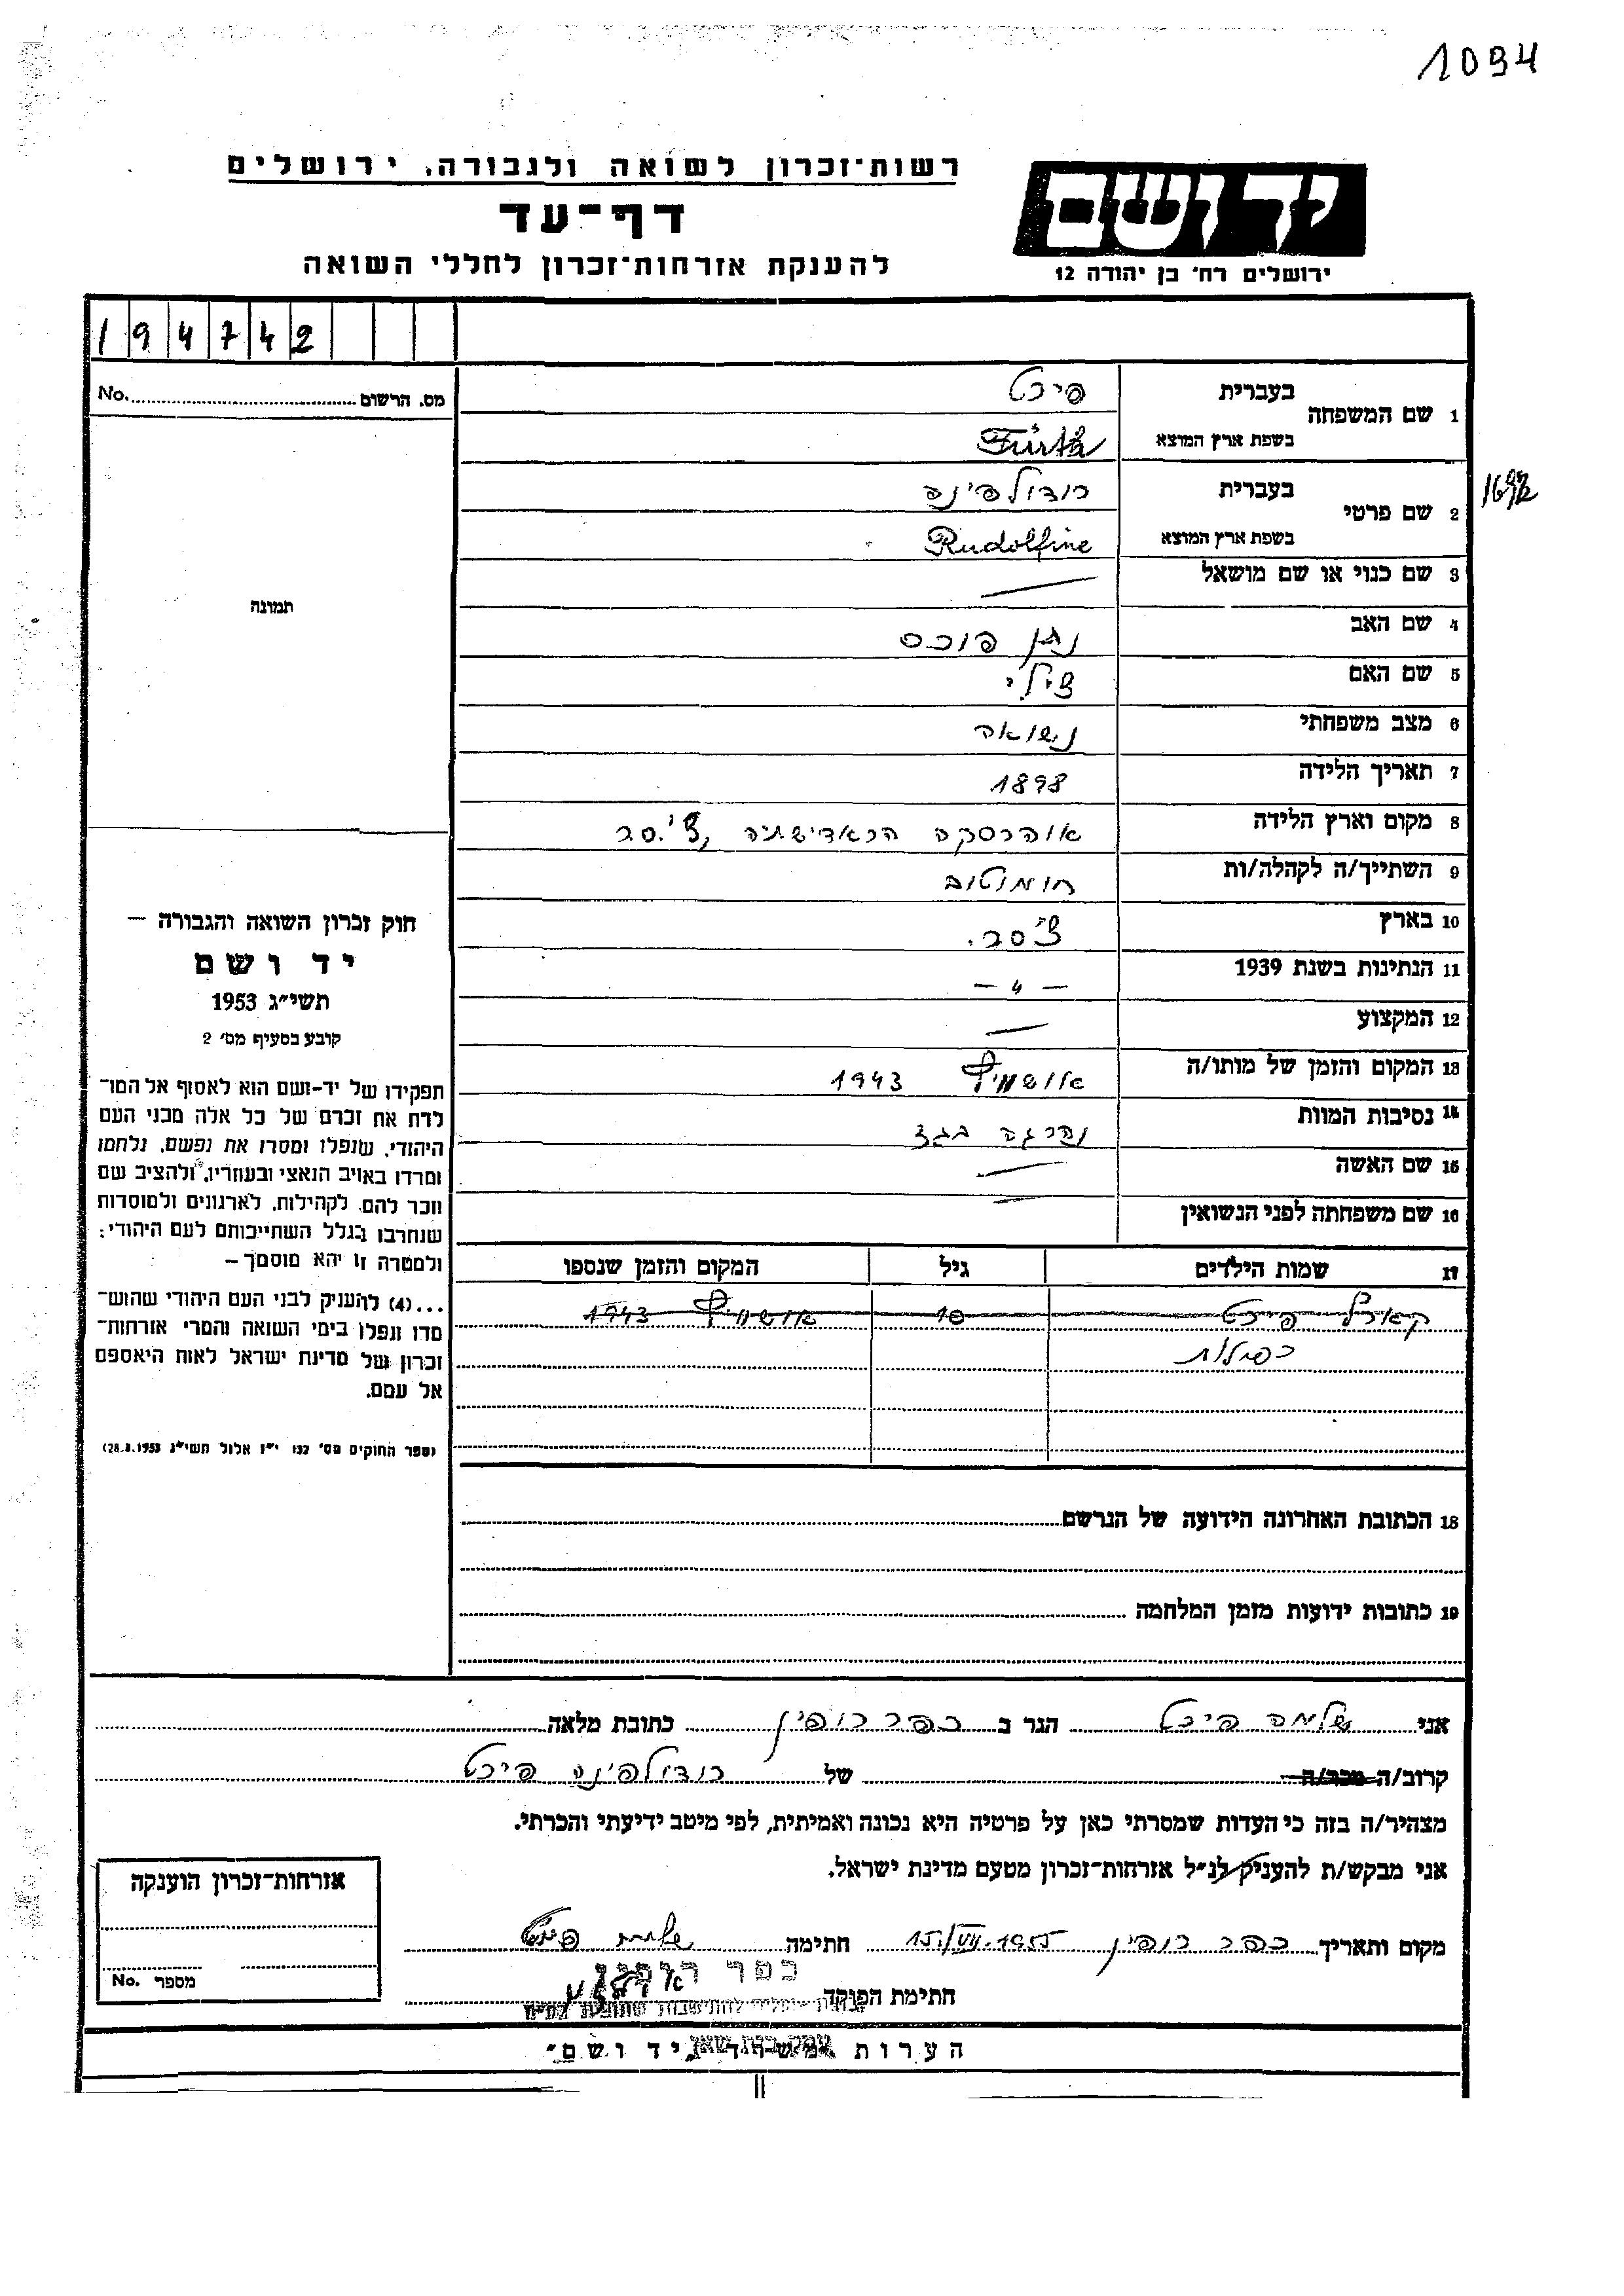 1094
רשות־זכרון לשואה ולגבורה, ירושלים
יד ושם
דף־עד
להענקת אזרחות־זכרון לחללי השואה
ירושלים רח' בן יהודה 12
194742
No. מס. הרשום
תמונה
1 שם המשפחה בעברית פירט
בשפת ארץ המוצא Fürth
2 שם פרטי בעברית רודולפינה
בשפת ארץ המוצא Rudolfine
3 שם כנוי או שם מושאל —
4 שם האב נתן פוכס
5 שם האם צילי
6 מצב משפחתי נשואה
7 תאריך הלידה 1898
8 מקום וארץ הלידה אוהרסקה הראדישתה, צ'.סר
9 השתייך/ה לקהלה/ות חומוטוב
10 בארץ צ'סר.
11 הנתינות בשנת 1939 — 4 —
12 המקצוע —
13 המקום והזמן של מותו/ה אושוויץ 1943
14 נסיבות המוות נהרגה בגז
15 שם האשה —
16 שם משפחתה לפני הנשואין —
17 שמות הילדים גיל המקום והזמן שנספו
קארל פירט 10 אושוויץ 1943
כפילות
חוק זכרון השואה והגבורה —
יד ושם
תשי״ג 1953
קובע בסעיף מס' 2
תפקידו של יד-ושם הוא לאסוף אל המו־
לדת את זכרם של כל אלה מבני העם
היהודי, שנפלו ומסרו את נפשם, נלחמו
ומרדו באויב הנאצי ובעוזריו, ולהציב שם
וזכר להם, לקהילות, לארגונים ולמוסדות
שנחרבו בגלל השתייכותם לעם היהודי;
ולמטרה זו יהא מוסמך —
...(4) להעניק לבני העם היהודי שהוש־
מדו ונפלו בימי השואה והמרי אזרחות־
זכרון של מדינת ישראל לאות היאספם
אל עמם.
(ספר החוקים מס' 132 י״ז אלול תשי״ג 28.8.1953)
18 הכתובת האחרונה הידועה של הנרשם
19 כתובות ידועות מזמן המלחמה
אני שלמה פירט הגר ב כפר רופין כתובת מלאה
קרוב/ה מכר/ה של רודולפינה פירט
מצהיר/ה בזה כי העדות שמסרתי כאן על פרטיה היא נכונה ואמיתית, לפי מיטב ידיעתי והכרתי.
אני מבקש/ת להעניק לנ״ל אזרחות-זכרון מטעם מדינת ישראל.
מקום ותאריך כפר רופין 15./VII.1955 חתימה שלמה פירט
חתימת הפוקד כפר רופין
אזרחות-זכרון הוענקה
No. מספר
הערות משרד „יד ושם״